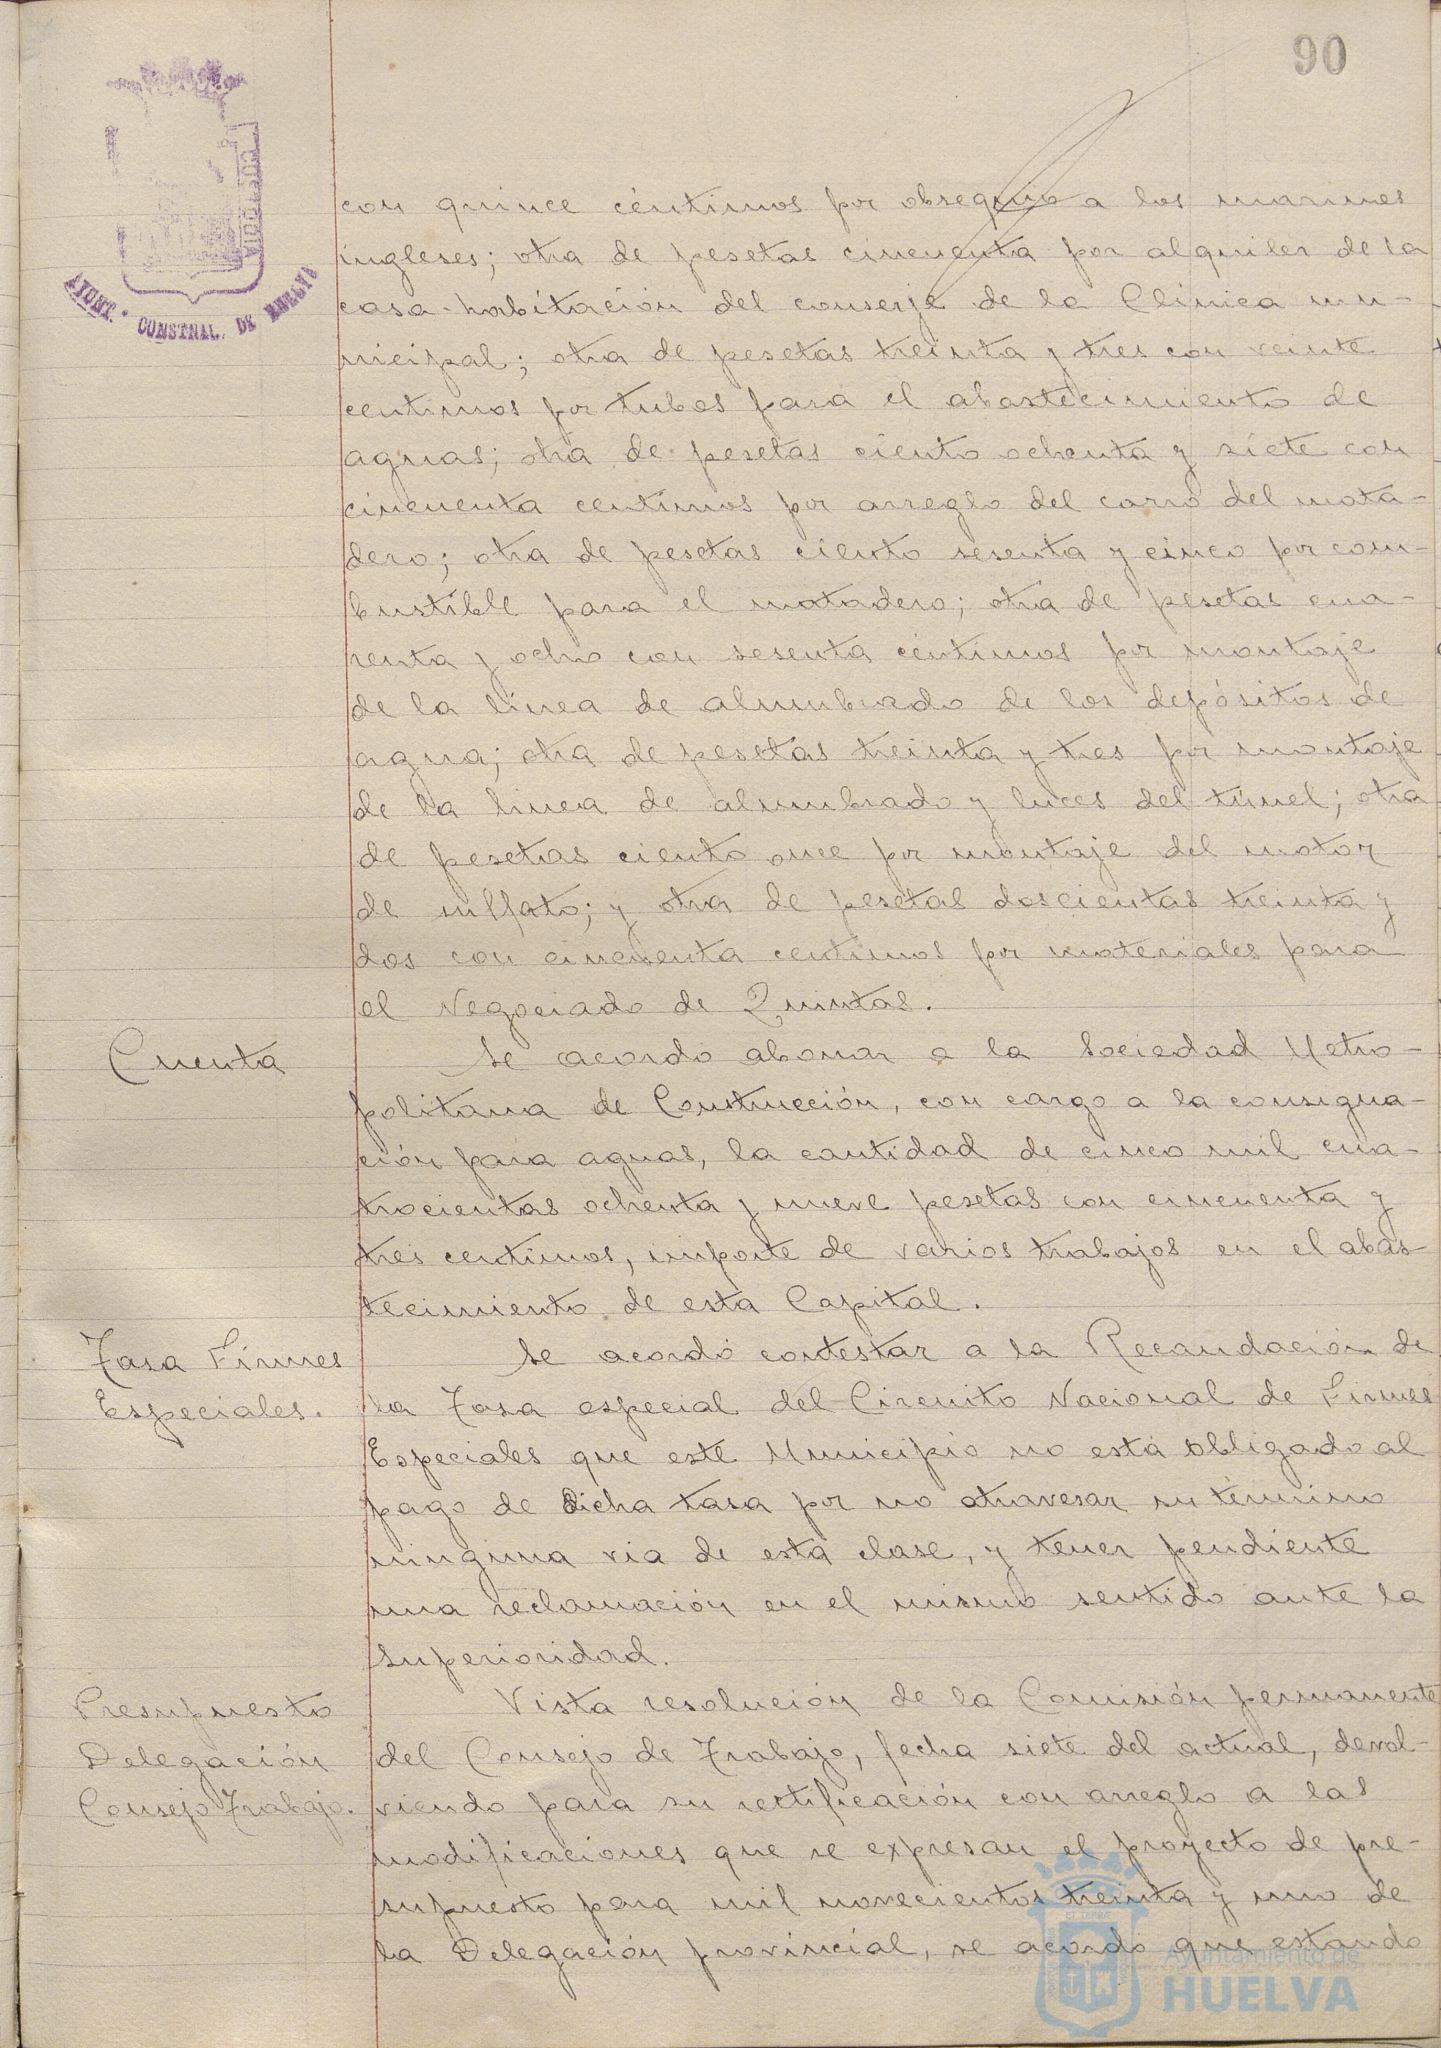 90
AYUNT. CONSTNAL. DE HUELVA
CUSTODIA
con quince céntimos por obsequio a los marinos
ingleses; otra de pesetas cincuenta por alquiler de la
casa-habitación del conserje de la Clínica mu-
nicipal; otra de pesetas treinta y tres con veinte
centimos por tubos para el abastecimiento de
aguas; otra de pesetas ciento ochenta y siete con
cincuenta centimos por arreglo del carro del mata-
dero; otra de pesetas ciento sesenta y cinco por com-
bustible para el matadero; otra de pesetas cua-
renta y ocho con sesenta céntimos por montaje
de la línea de alumbrado de los depósitos de
agua; otra de pesetas treinta y tres por montaje
de la linea de alumbrado y luces del túnel; otra
de pesetas ciento once por montaje del motor
de sulfato; y otra de pesetas doscientas treinta y
dos con cincuenta centimos por materiales para
el Negociado de Quintas.
Cuenta
Se acordó abonar a la Sociedad Metro-
politana de Construcción, con cargo a la consigna-
ción para aguas, la cantidad de cinco mil cua-
trocientas ochenta y nueve pesetas con cincuenta y
tres centimos, importe de varios trabajos en el abas-
tecimiento de esta Capital.
Tasa Firmes
Especiales.
Se acordó contestar a la Recaudación de
la Tasa especial del Circuito Nacional de Firmes
Especiales que este Municipio no está obligado al
pago de dicha tasa por no atravesar su término
ninguna via de esta clase, y tener pendiente
una reclamación en el mismo sentido ante la
Superioridad.
Presupuesto
Delegación
Consejo Trabajo.
Vista resolución de la Comisión permanente
del Consejo de Trabajo, fecha siete del actual, devol-
viendo para su rectificación con arreglo a las
modificaciones que se expresan el proyecto de pre-
supuesto para mil novecientos treinta y uno de
la Delegación provincial, se acordó que estando
Ayuntamiento de
HUELVA